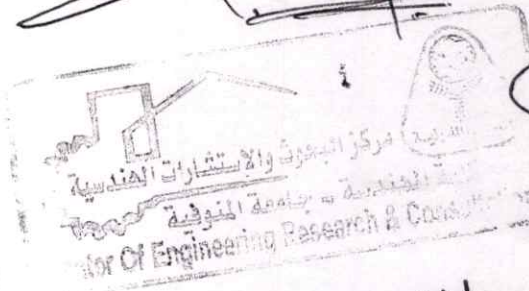 مركز البحوث والإستشارات الهندسية
الهندسية - جامعة المنوفية
Of Engineering Research &